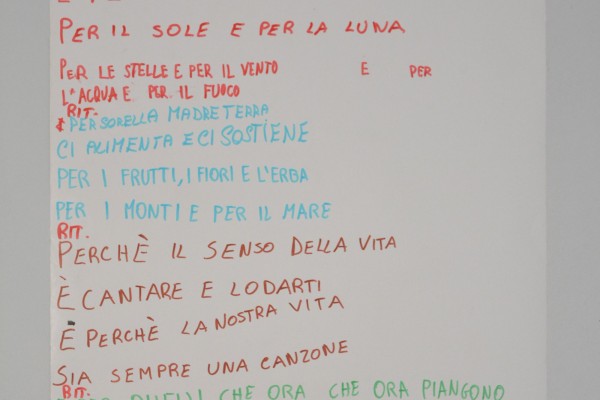 PER IL SOLE E PER LA LUNA
PER LE STELLE E PER IL VENTO E PER
L'ACQUA E PER IL FUOCO
RIT.
E PER SORELLA MADRE TERRA
CI ALIMENTA E CI SOSTIENE
PER I FRUTTI, I FIORI E L'ERBA
PER I MONTI E PER IL MARE
RIT.
PERCHÈ IL SENSO DELLA VITA
È CANTARE E LODARTI
E PERCHÈ LA NOSTRA VITA
SIA SEMPRE UNA CANZONE
RIT.
QUELLI CHE ORA CHE ORA PIANGONO